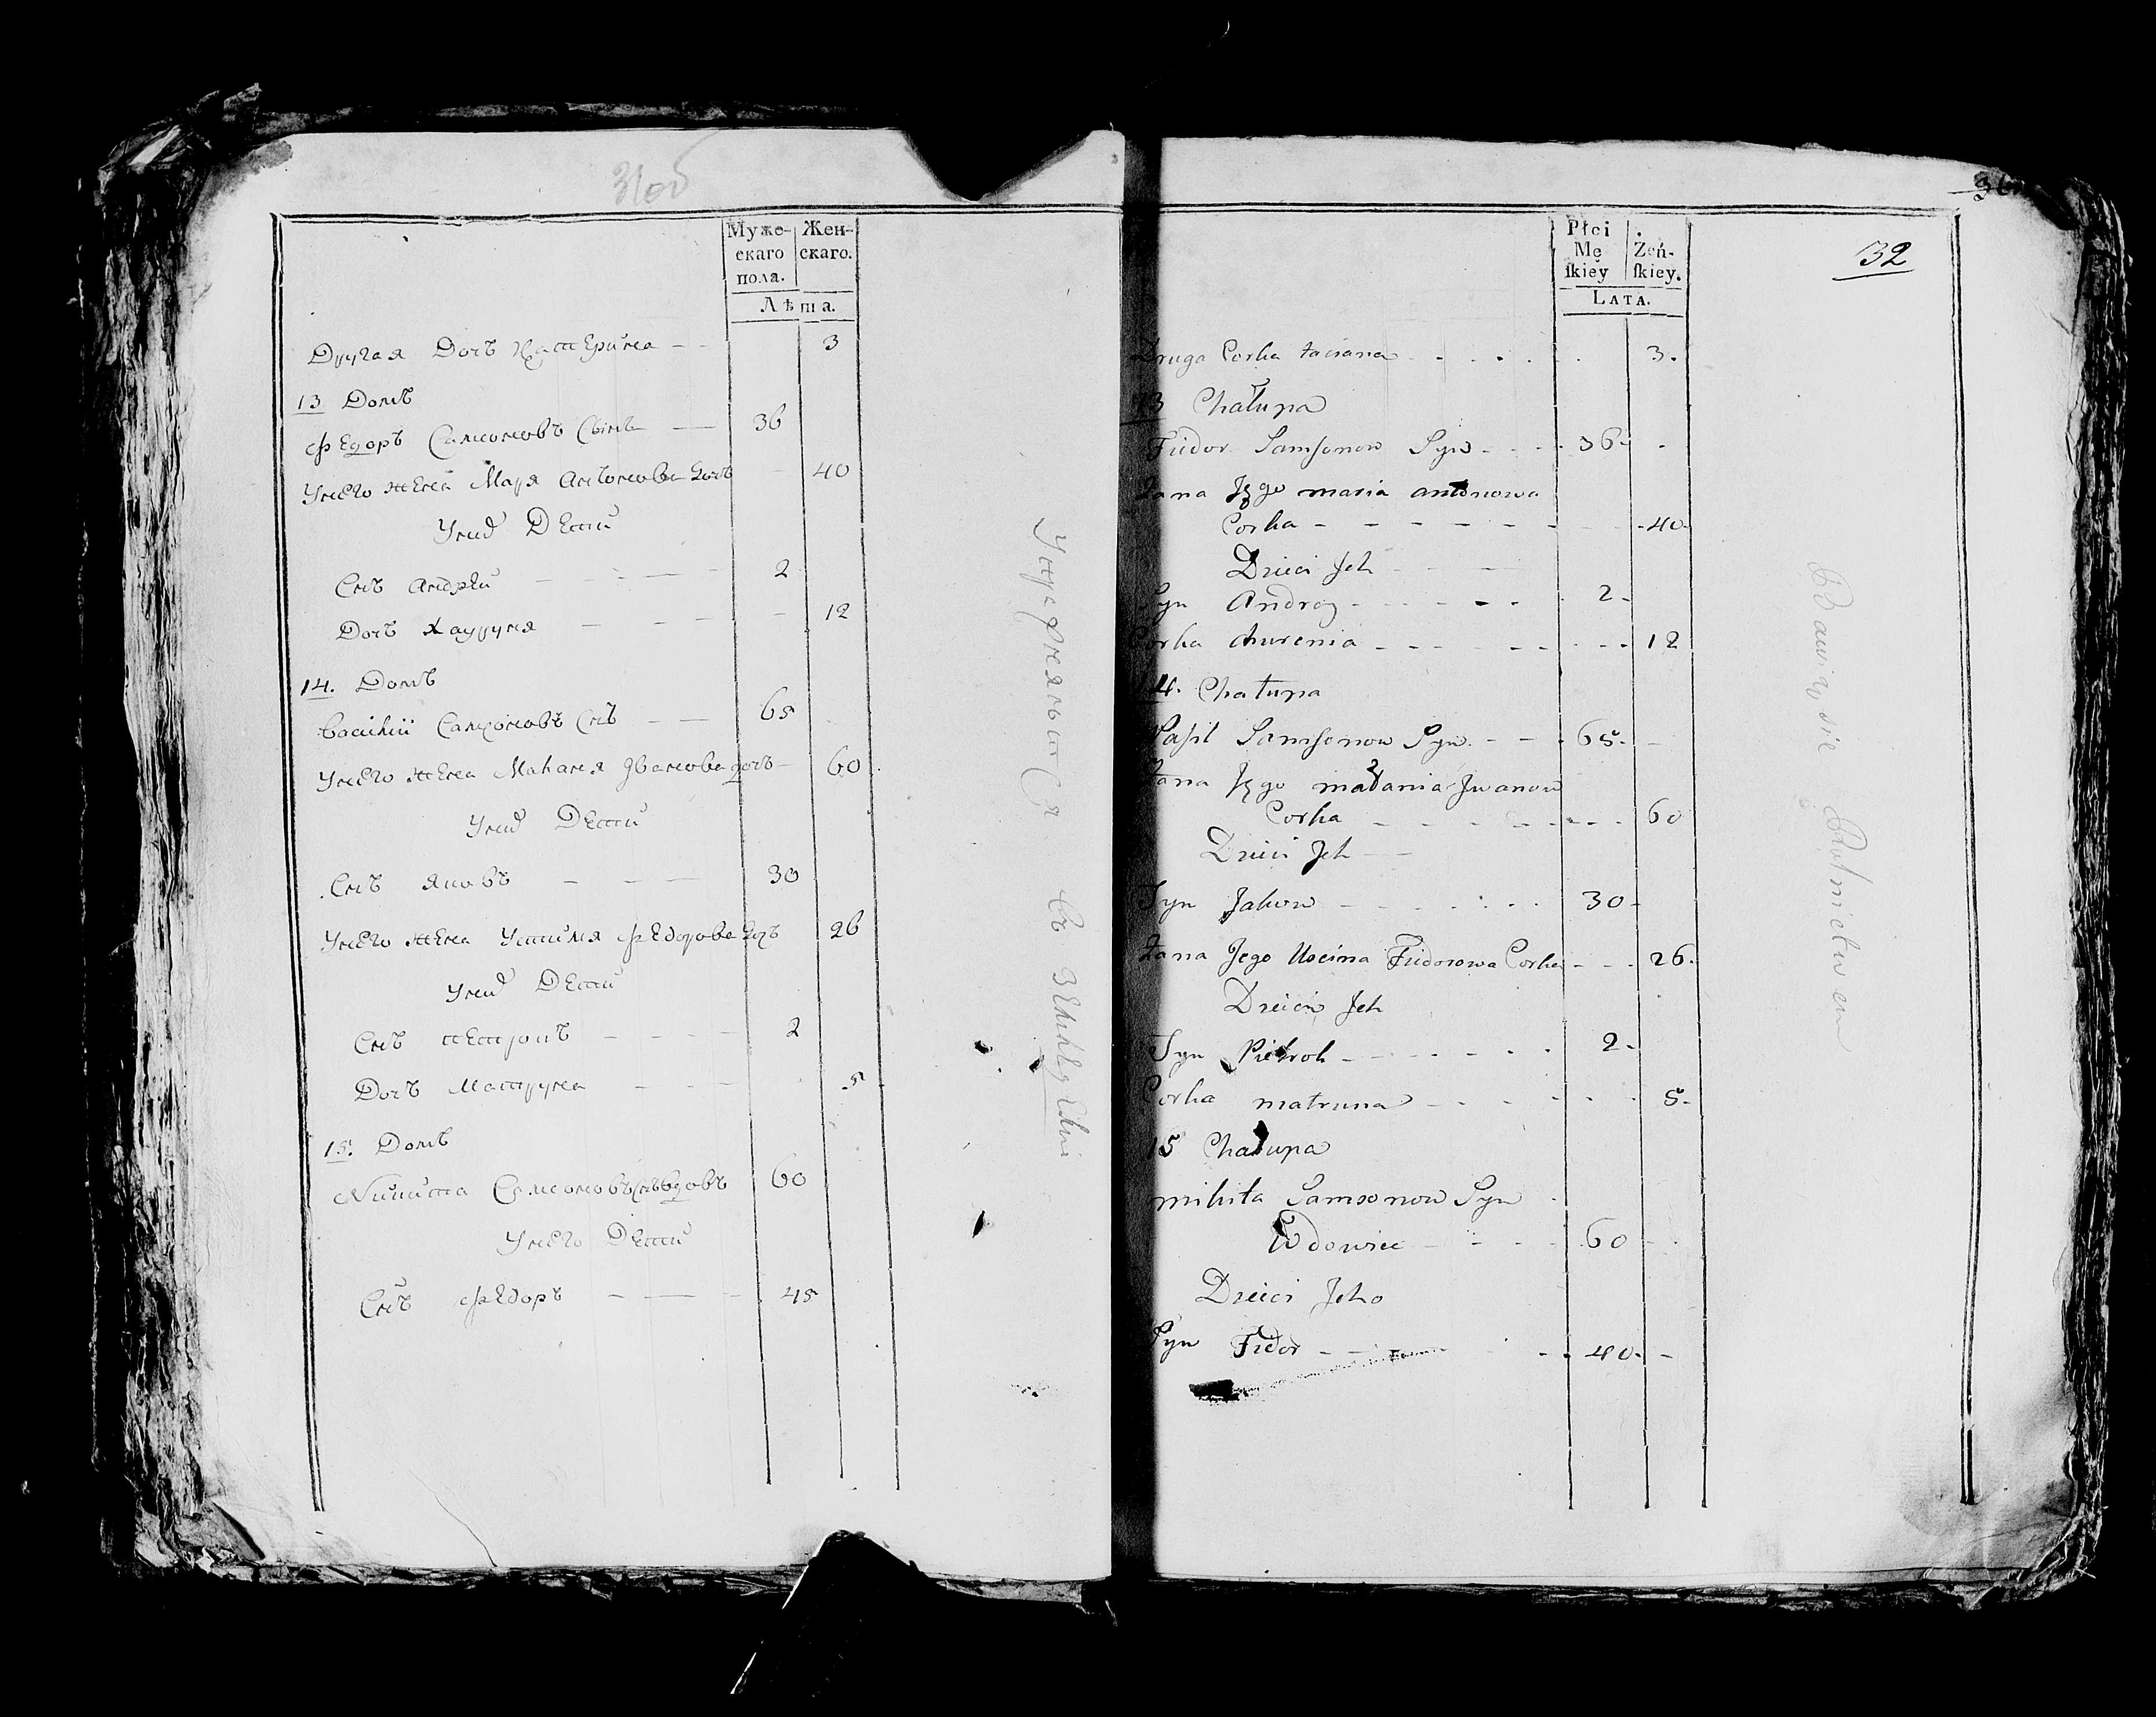 31об
Муже-
скаго
пола.
Жен-
скаго.
Лѣта.
Другая Дочь Катерина 3
13 Домъ
Федоръ Самсоновъ Сынъ 36
Унего жена Маря Антонова дочь 40
Унихъ Дети
Снъ Андрей 2
Дочь Хауруня 12
14. Домъ
Василий Самсоновъ Снъ 65
Унего жена Маланя Иванова дочь 60
Унихъ Дети
Снъ Яковъ 30
Унего жена Устиня Федорова дочь 26
Унихъ Дети
Снъ петрокъ 2
Дочь Матруна 5
15. Домъ
Никита Самсоновъ Снъ вдовъ 60
Унего Дети
Снъ Федоръ 45
Упражняются въ земледелии
32
Płci
Mę
skiey
Żeń-
skiey.
Lata.
Druga Corka taciana 3.
13 Chałupa
Fiedor Samsonow Syn 36
Żana Jego maria antonowa
Corka 40
Dzieci Jch
Syn Andrey 2
Corka churenia 12
14. Chałupa
Wasil Samsonow Syn 65
Żana Jego małania Jwanow
Corka 60
Dzieci Jch
Syn Jakow 30
Żana Jego Uscinia Fiedorowa Corka 26.
Dzieci Jch
Syn Pietrok 2
Corka matruna 5
15 Chałupa
mikita Samsonow Syn
Wdowiec 60
Dzieci Jeho
Syn Fiedor 40
Bawią się Rolnictwem